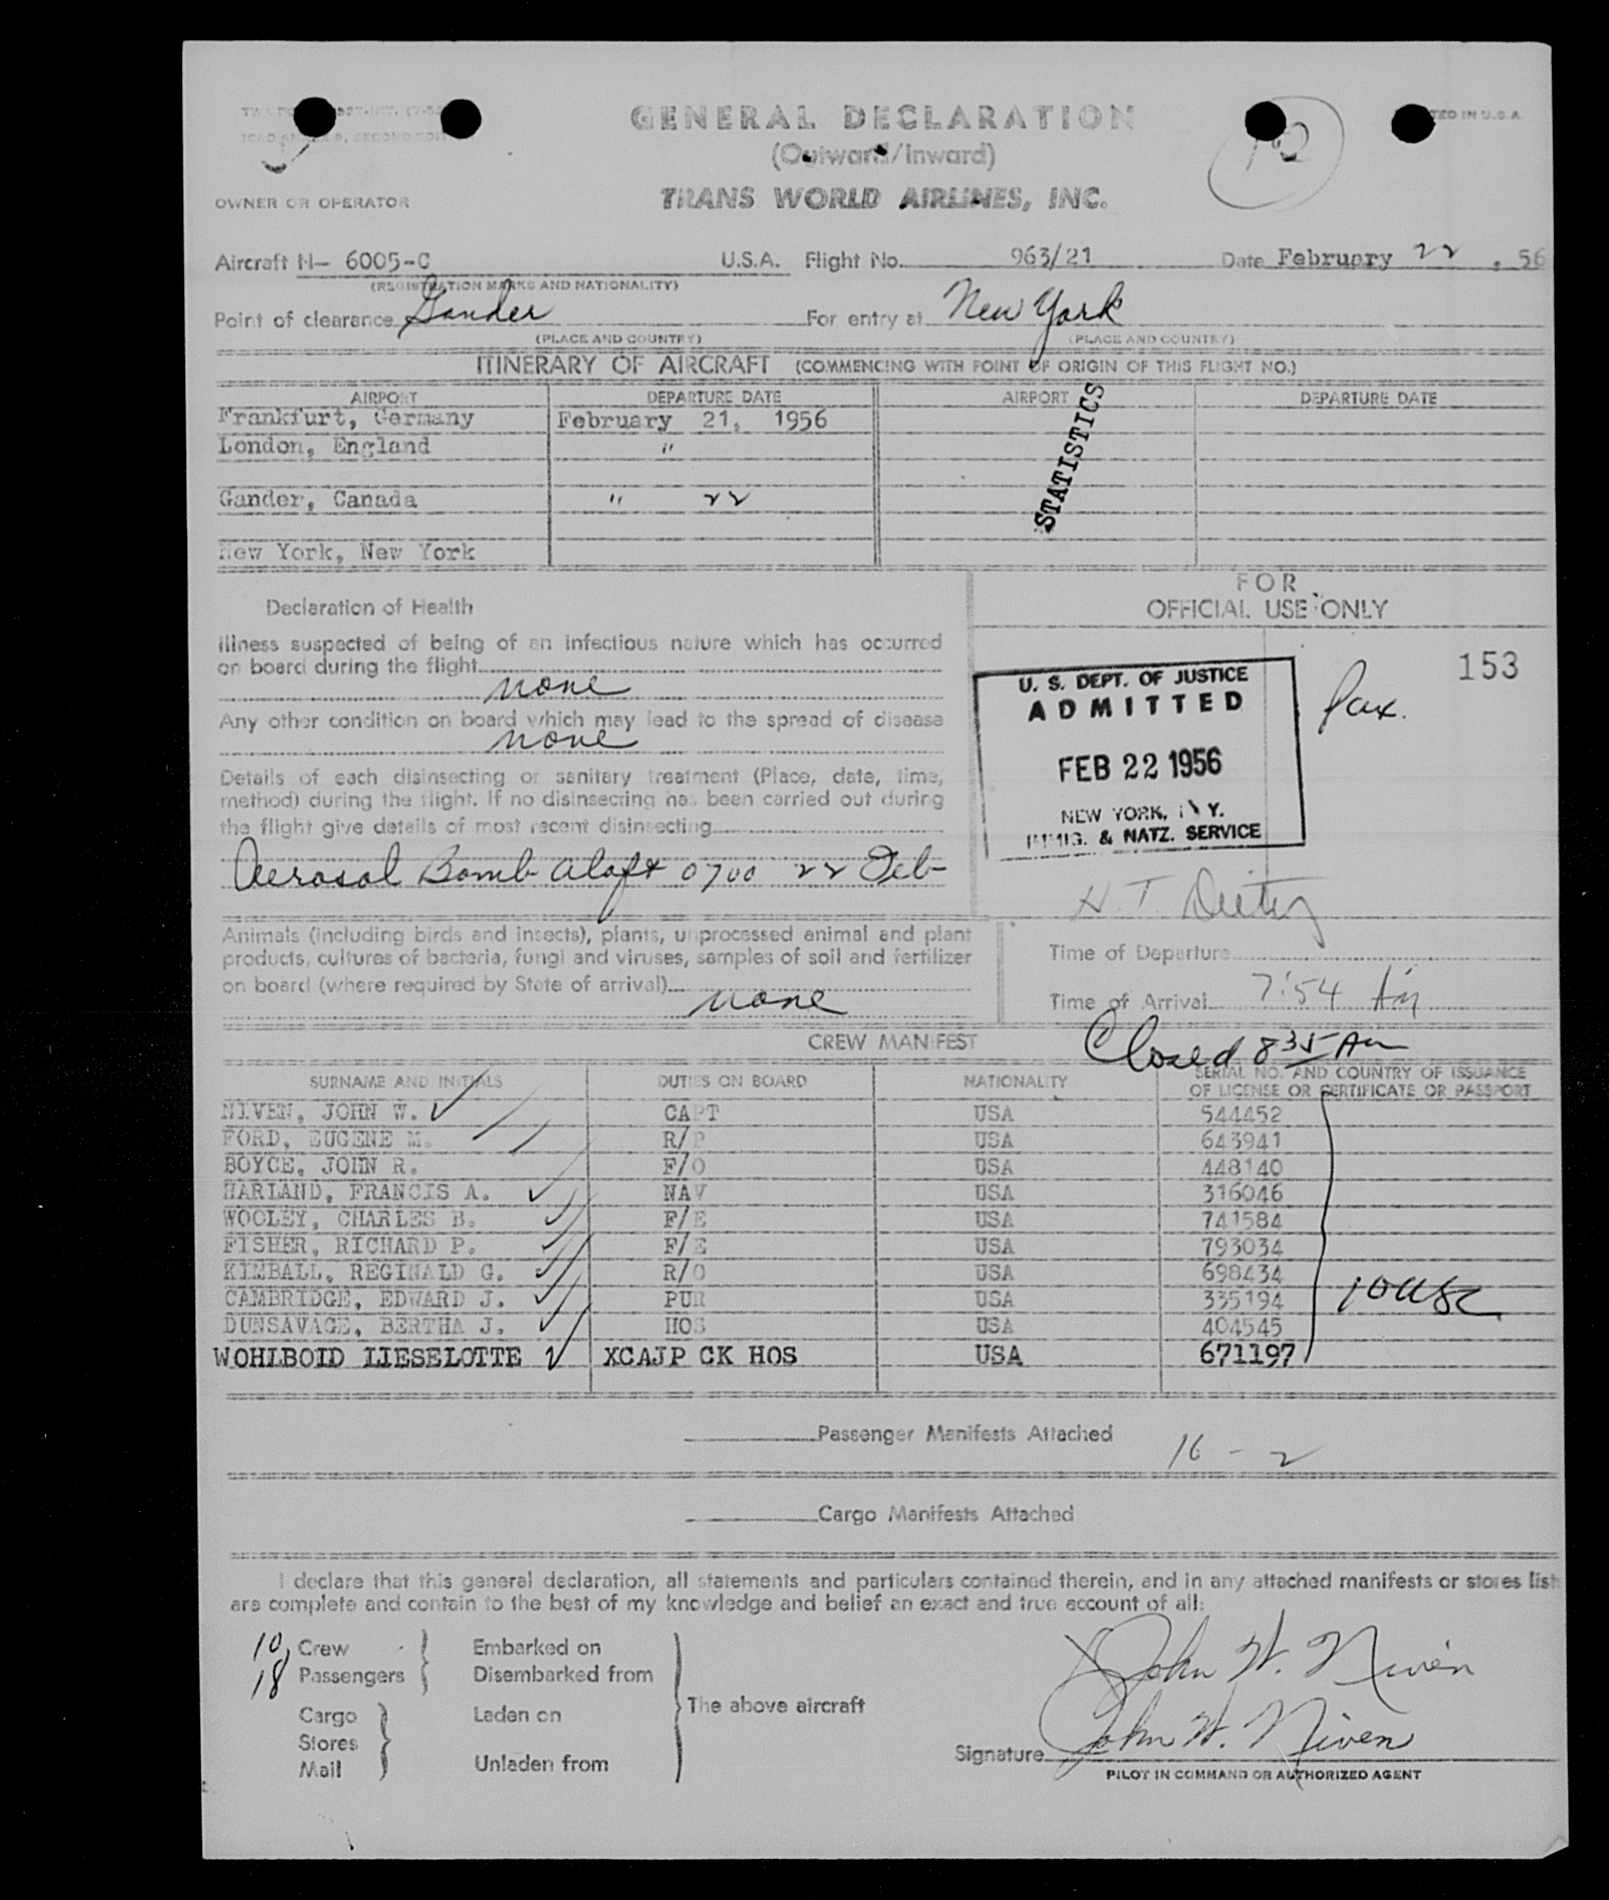 GENERAL DECLARATION
(Outward/Inward)
TRANS WORLD AIRLINES, INC.
OWNER OR OPERATOR
Aircraft N- 6005-C U.S.A. Flight No. 963/21 Date February 22, 56
(REGISTRATION MARKS AND NATIONALITY)
Point of clearance Gander For entry at New York
(PLACE AND COUNTRY) (PLACE AND COUNTRY)
ITINERARY OF AIRCRAFT (COMMENCING WITH POINT OF ORIGIN OF THIS FLIGHT NO.)
AIRPORT DEPARTURE DATE AIRPORT DEPARTURE DATE
Frankfurt, Germany February 21, 1956
London, England "
Gander, Canada " 22
New York, New York
STATISTICS
Declaration of Health
Illness suspected of being of an infectious nature which has occurred
on board during the flight
none
Any other condition on board which may lead to the spread of disease
none
Details of each disinsecting or sanitary treatment (Place, date, time,
method) during the flight. If no disinsecting has been carried out during
the flight give details of most recent disinsecting
Aerosol Bomb aloft 0700 22 Feb
FOR
OFFICIAL USE ONLY
153
Pax.
U. S. DEPT. OF JUSTICE
ADMITTED
FEB 22 1956
NEW YORK, N. Y.
IMMIG. & NATZ. SERVICE
H. T.
Animals (including birds and insects), plants, unprocessed animal and plant
products, cultures of bacteria, fungi and viruses, samples of soil and fertilizer
on board (where required by State of arrival)
none
Time of Departure
Time of Arrival 7:54 Am
Closed 835 Am
CREW MANIFEST
SURNAME AND INITIALS DUTIES ON BOARD NATIONALITY SERIAL NO. AND COUNTRY OF ISSUANCE
OF LICENSE OR CERTIFICATE OR PASSPORT
NIVEN, JOHN W. CAPT USA 544452
FORD, EUGENE M. R/P USA 643941
BOYCE, JOHN R. F/O USA 448140
HARLAND, FRANCIS A. NAV USA 316046
WOOLEY, CHARLES B. F/E USA 741584
FISHER, RICHARD P. F/E USA 793034
KIMBALL, REGINALD G. R/O USA 698434
CAMBRIDGE, EDWARD J. PUR USA 335194
DUNSAVAGE, BERTHA J. HOS USA 404545
WOHLBOID LIESELOTTE XCAJP CK HOS USA 671197
10 USC
Passenger Manifests Attached 16 - 2
Cargo Manifests Attached
I declare that this general declaration, all statements and particulars contained therein, and in any attached manifests or stores list
are complete and contain to the best of my knowledge and belief an exact and true account of all:
10 Crew Embarked on
18 Passengers Disembarked from
The above aircraft
Cargo Laden on
Stores
Mail Unladen from
John W. Niven
John W. Niven
Signature
PILOT IN COMMAND OR AUTHORIZED AGENT